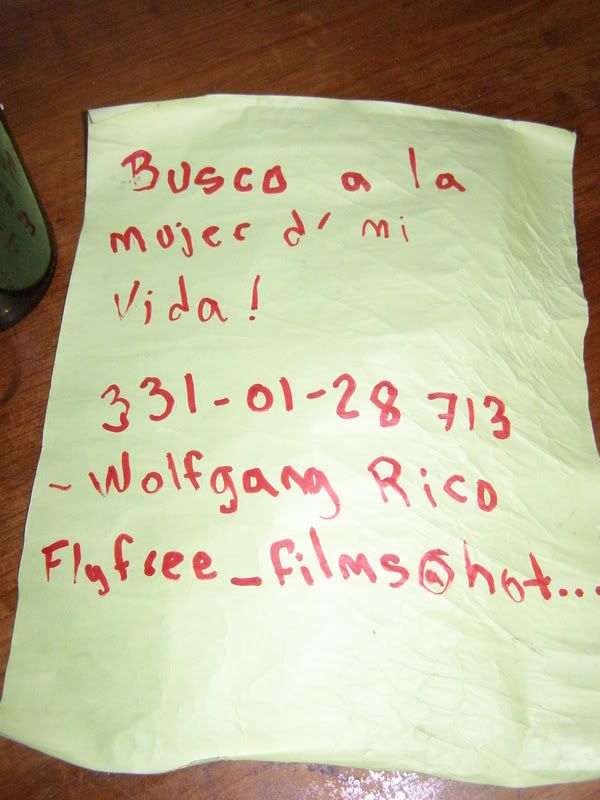 Busco a la
mujer d' mi
Vida!
331-01-28 713
- Wolfgang Rico
Flyfree_films@hot...